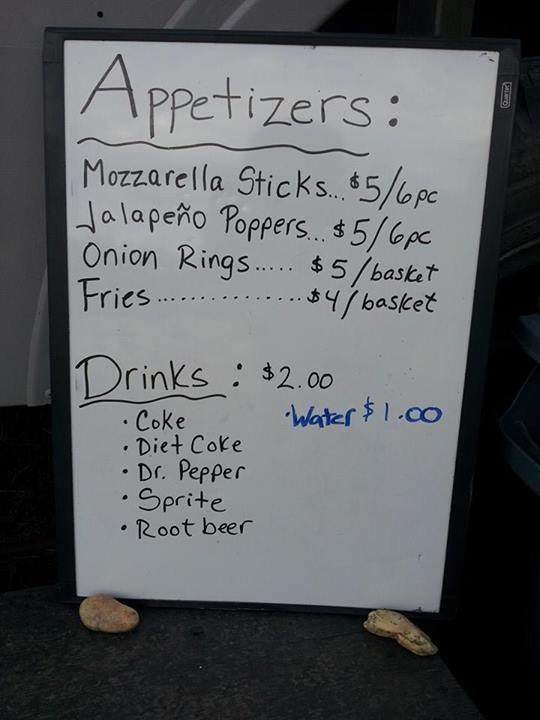 Quartet
Appetizers:
Mozzarella Sticks...$5/6pc
Jalapeño Poppers...$5/6pc
Onion Rings..... $5/basket
Fries.............$4/basket
Drinks: $2.00
• Coke
•Water $1.00
• Diet Coke
• Dr. Pepper
• Sprite
• Root beer